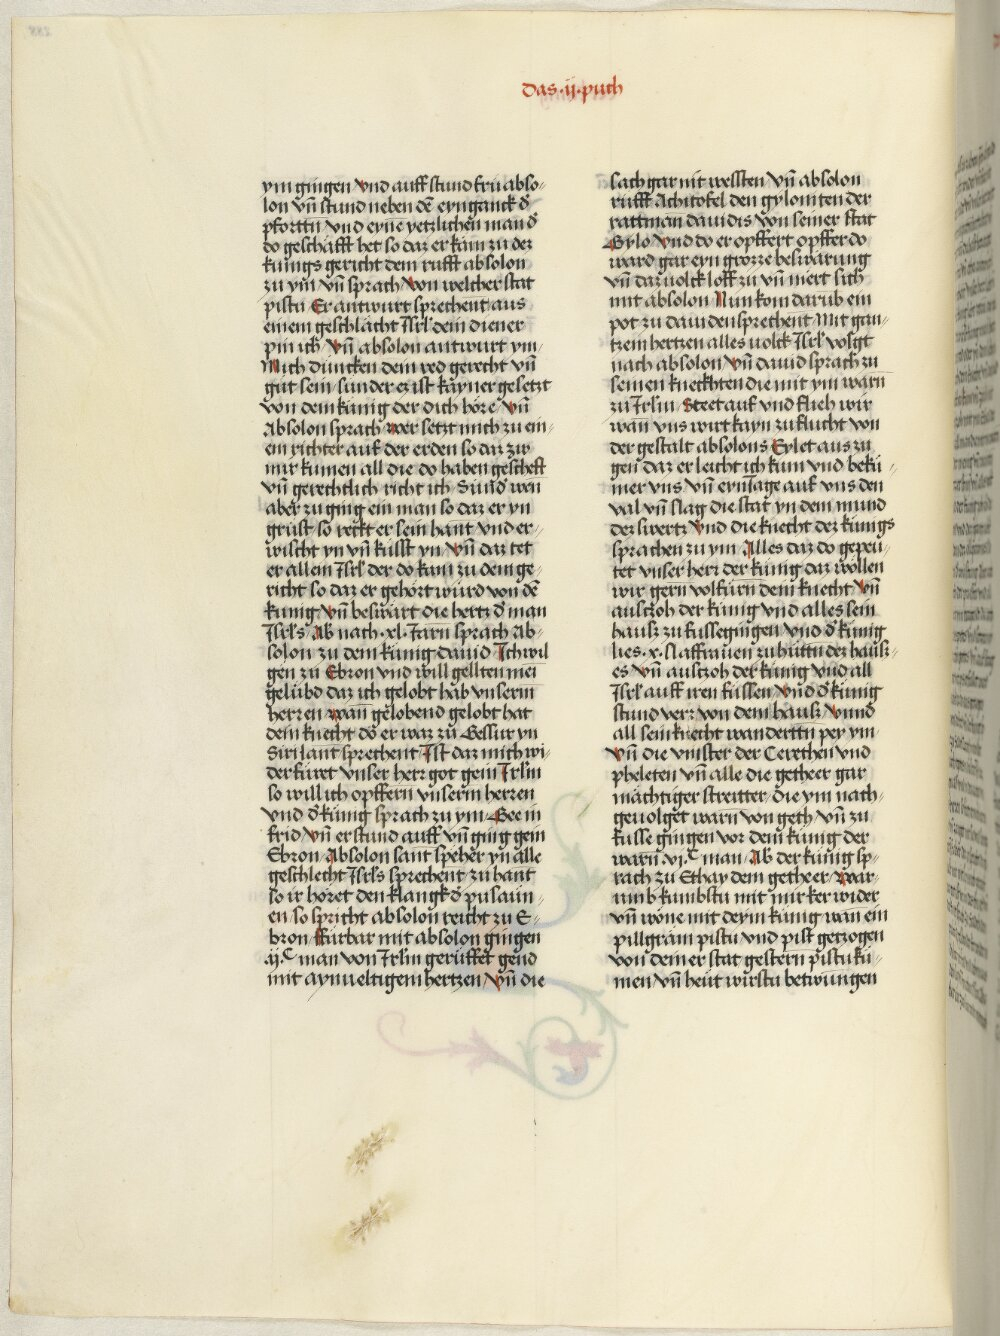 das ·ij· puch
ym gingen vnd auff stund fru abso-
lon vn̄ stund neben dē eynganck d̄
pforttn̄ vnd eyne yetzlichen man d̄
do geschäfft het so daz er käm zu dez
kunigs gericht dem rufft absolon
zu ym vn̄ sprach Von welcher stat
pistu Er antwurt sprechent aus
einem geschlächt Isrl̄ dein diener
pin ich Vn̄ absolon antwurt ym
Mich duncken dein red gerecht vn̄
gut sein sunder ez ist kayner gesetzt
von dem kunig der dich höre Vn̄
Absolon sprach wer setzt mich zu ein-
em richter auf der erden so daz zu
mir kumen all die do haben gescheft
vn̄ gerechtlich richt ich Sund̄ wen
aber zu ging ein man so daz er yn
grust so reckt er sein hant vnd er-
wischt yn vn̄ kusst yn Vn̄ daz tet
er allem Isrl̄ der do kam zu dem ge-
richt so daz er gehört würd von dē
kunig vn̄ beswärt die hertz d̄ man
Isrl̄s Ab nach ·xl· Jarn sprach Ab-
solon zu dem kunig dauid Ich wil
gen zu Ebron vnd will gellten mei
gelübd daz ich gelobt hab vnserm
herren wan gelobend gelobt hat
dein knecht do er waz zu Gessur yn
Siri lant sprechent Ist daz mich wi-
der füret vnser herr got gein Irlm̄
so will ich opffern vnserm herren
vnd d̄ kunig sprach zu ym Gee in
frid Vn̄ er stund auff vn̄ ging gem
Ebron Absolon sant speher yn alle
geschlecht Isrl̄s sprechent zu hant
so ir höret den klangk d̄ pusaun-
en so spricht absolon reicht zu E-
bron Fürbar mit absolon gingen
ij·C man von Irlm̄ gerüffet gend
mit aynueltigem hertzen Vn̄ die
sach gar nit wessten Vn̄ absolon
rufft Achitofel den gyloniten der
rattman dauidis von seiner stat
Gylo Vnd do er opffert opffer do
ward gar eyn grozze beswärung
vn̄ daz uolck loff zu vn̄ mert sich
mit absolon Nun kom darub ein
pot zu dauiden sprechent Mit gan-
tzem hertzen alles uolck Isrl̄ volgt
nach absolon Vn̄ dauid sprach zu
seinen kneckhten die mit ym warn
zu Irlm̄ Steet auf vnd flieh wir
wan vns wirt kayn zuflucht von
der gestalt absolons Eylet aus zu
gen daz er leicht ich kum vnd bekü-
mer vns vn̄ ern̄ Tage auf vns den
val vn̄ slag die stat yn dem mund
dez swertz Vnd die knecht dez kunigs
sprachen zu ym Alles daz do gepeu-
tet vnser herr der kunig daz wöllen
wir gern volfürn dein knecht Vn̄
auszoh der kunig vnd alles sein
hausz zu fussen gingen vnd d̄ kunig
lies ·x· slaffrauen zu hüttn̄ dez hausz-
es Vn̄ auszoh der kunig vnd all
Isrl̄ auff iren füssen Vnd d̄ kunig
stund verz von dem hausz Vnnd
all sein knecht wandertn̄ pey ym
Vn̄ die vnister der Cerethen vnd
pheleten vn̄ alle die getheer gar
mächtiger streitter die ym nach-
geuolget warn von geth vn̄ zu
fusse gingen vor dem kunig der
warn ·vj·C man Ab der kunig sp-
rach zu Ethay dem getheer War-
umb kumbstu mit mir ker wider
vn̄ wone mit deym kunig wan ein
pillgräm pistu vnd pist gezogen
von deiner stat gestern pistu kü-
men vn̄ heut wirstu betwungen